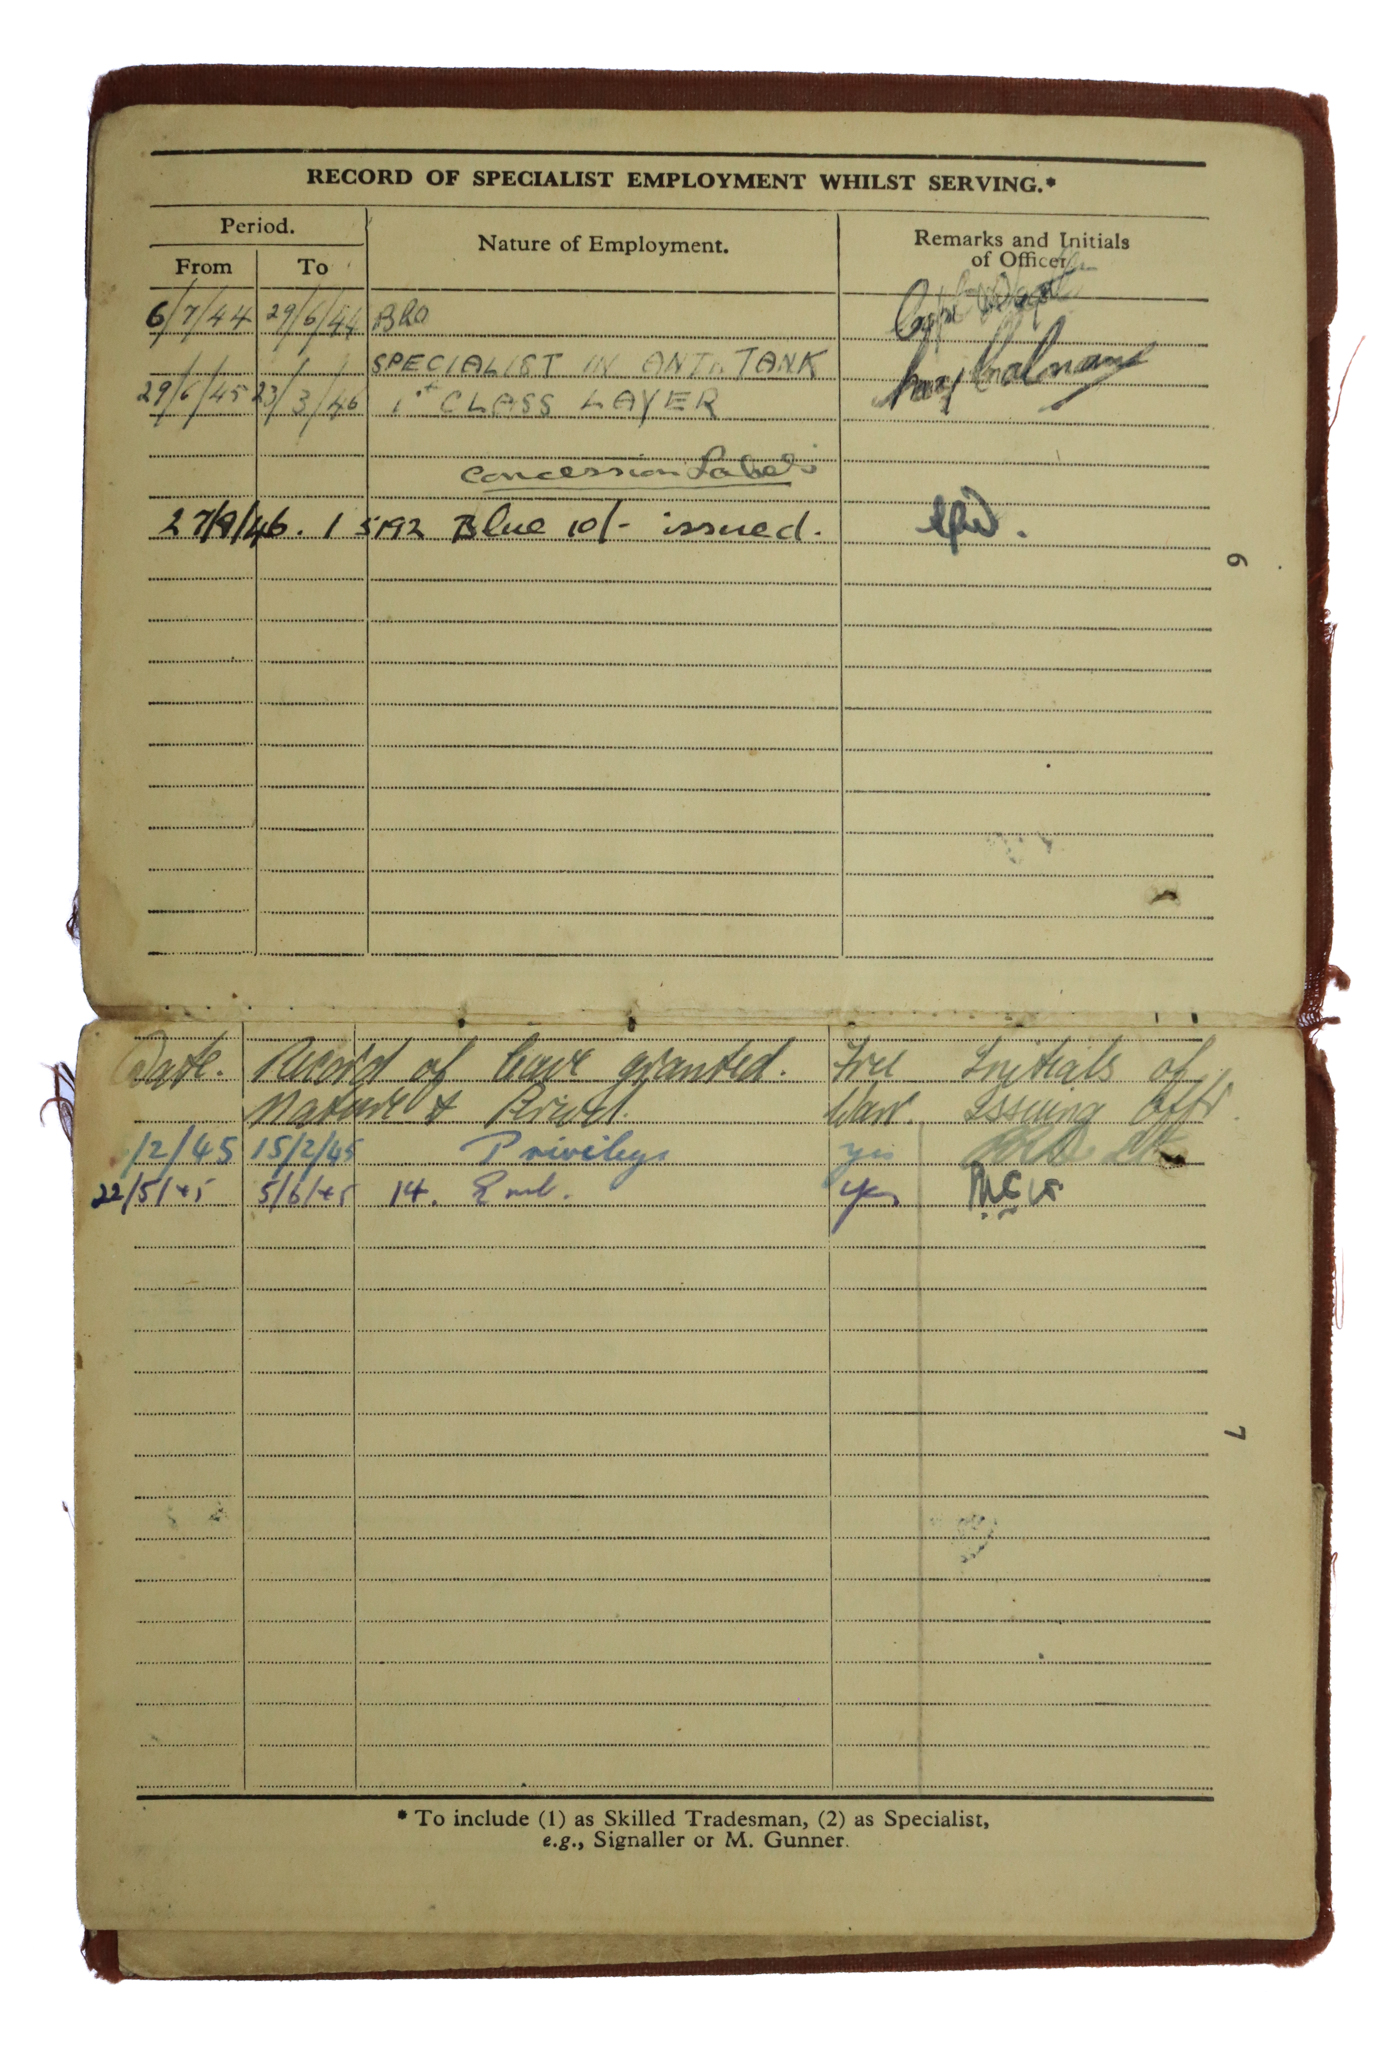 RECORD OF SPECIALIST EMPLOYMENT WHILST SERVING.*
Period.
Nature of Employment.
Remarks and Initials
of Officer
From To
6/7/44 29/6/44
SPECIALIST IN ANTI TANK
29/6/45 23/3/46 1st CLASS LAYER
Concession Labels
27/9/46. 15192 Blue 10/- issued.
6
Date. Record of leave granted. Free Initials of
Nature & Period. Warr. Issuing Offr.
/2/45 15/2/45 Privilege yes
22/5/45 5/6/45 14. Emb. Yes
7
* To include (1) as Skilled Tradesman, (2) as Specialist,
e.g., Signaller or M. Gunner.